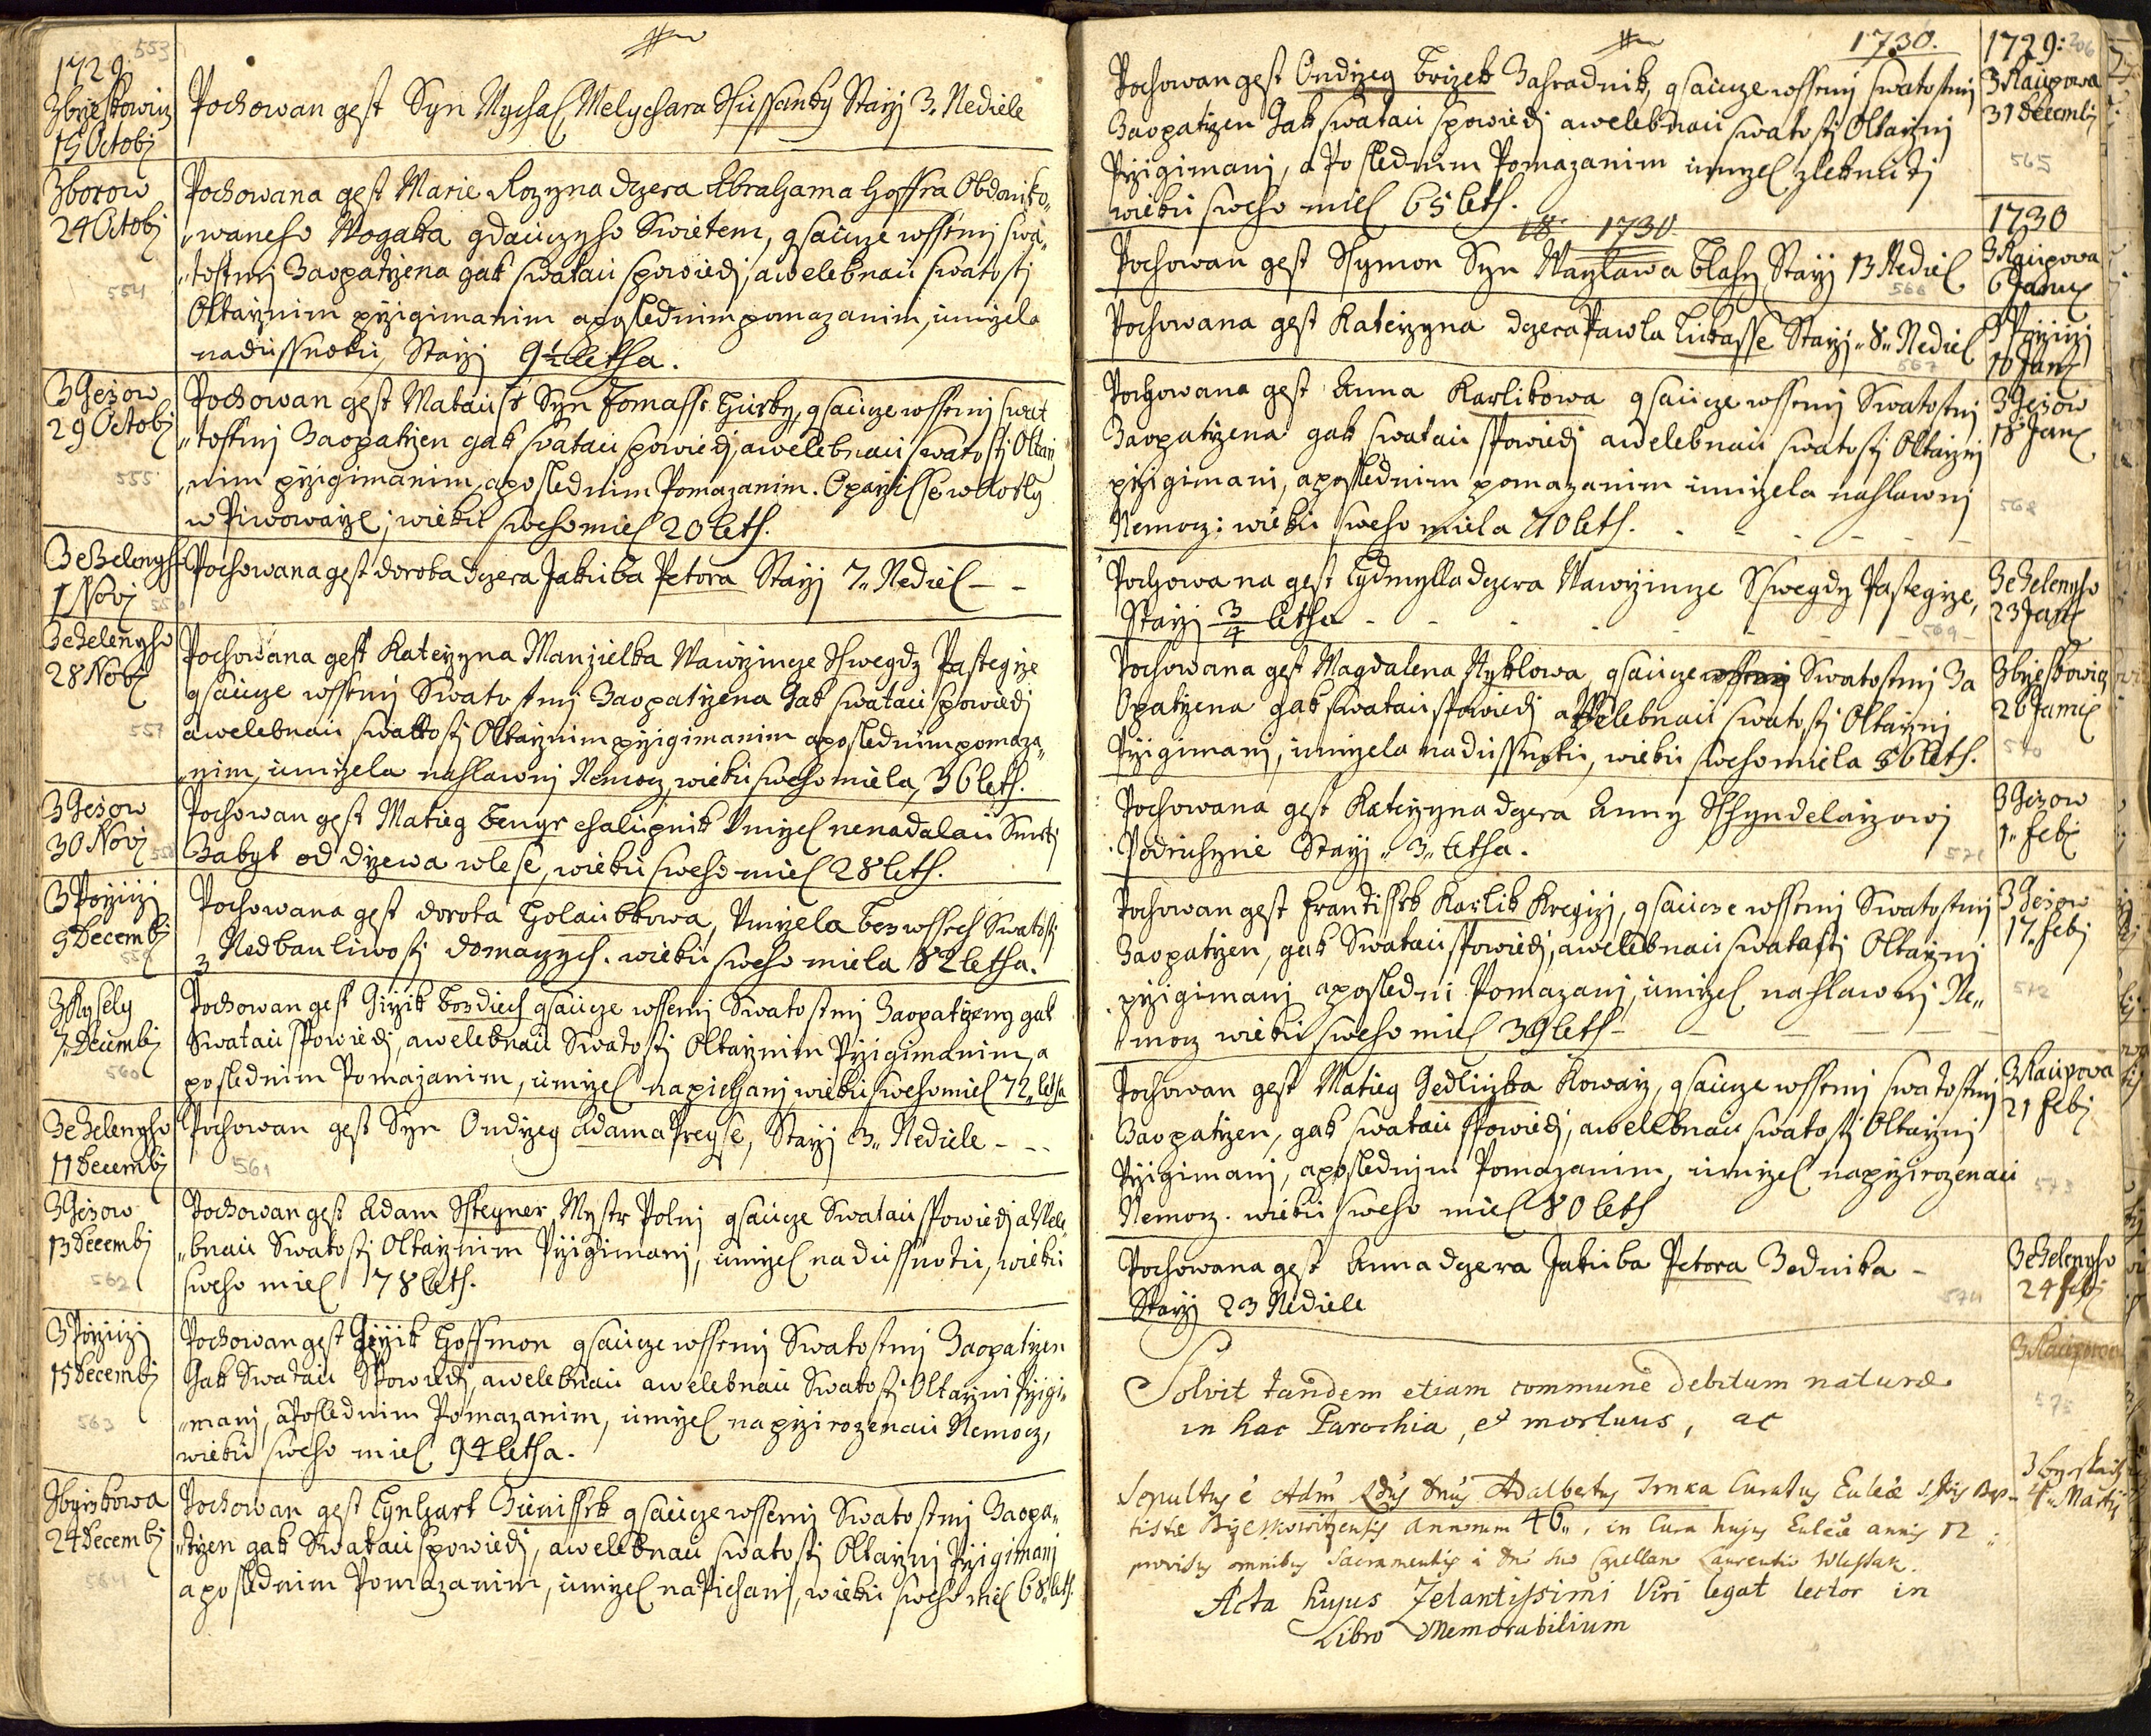 1729. 553
Zbrzeskowicz
15 Octobj
Pochowan gest Syn Mychal Melychara Hussanky Starzj 3. Nediele
Zborow
24 Octobj
554
Pochowana gest Marie Rozyna dczera Abrahama Hoffra Obdaniko„
„waneho Wogaka gdauczyho Swietem, gsaucze wssemj swa„
„tostmj Zaopatrzena gak swatau spowiedj, awelebnau swatostj
Oltarznim przigimanim aposlednim pomazanim, umrzela
nadussnotu, Starzj 9½ letha.
Z Gezow
29 Octobj
555
Pochowan gest Matausß Syn Tomasse Gurky, gsaucze wssemj swat
„tostmj Zaopatrzen gak swatau spowiedj, awelebnau swatostj Oltarz
„nim przigimanim, aposlednim Pomazanim. Oparzil se w kotly
w Piwowarze; wieku sweho miel 20 leth.
Ze Zelenyho
1 Novj 556
Pochowana gest dorota dczera Jakuba Petora Starzj 7„ Nediel - -
Ze Zelenyho
28 Novj
557
Pochowana gest Katerzyna Manzielka Wawrzincze Sswegdy Pastegrze
gsaucze wssemj Swatostmj Zaopatrzena Gak swatau spowiedj
awelebnau swattostj Oltarznim przigimanim aposlednim pomaza„
„nim, umrzela nahlawnj Nemocz, wieku sweho miela, 36 leth.
Z Gezow
30 Novj 558
Pochowan gest Matieg Bengr chalupnik Umrzel nenadalau Smrtj
Zabyt od drzewa wlese, wieku sweho miel 28 leth.
Z Porziczj
5 Decembj
559
Pochowana gest dorota Holaubkowa, Umrzela bez wssech Swatostj
z Nedbanliwostj domaczych. wieku sweho miela 82 letha.
Z Lysely
7„ Decembj
560
Pochowan gest Girzik Bozdiech gsaucze wssemj Swatostmj Zaopatrzeny gak
Swatau Spowiedj, awelebnau Swatostj Oltarznim Przigimanim, a
poslednim Pomazanim, umrzel napichanj wieku sweho miel 72„ letha
Ze Zelenyho
11 Decembj
561
Pochowan gest Syn Ondrzeg Adama Preyse, Starzj 3„ Nediele - - -
Z Gezow
13 Decembj
562
Pochowan gest Adam Ssteyner Mystr Polnj gsaucze Swatau Spowiedj a Wele
„bnau Swatostj Oltarznim Przigimanj, umrzel nadussnotu, wieku
sweho miel 78 leth.
Z Porziczj
15 Decembj
563
Pochowan gest Girzik Hoffmon gsaucze wssemj Swatostmj Zaopatrzen
Gak Swatau Spowiedj, awelebnau awelebnau Swatostj Oltarzni Przigi„
„manj, aPoslednim Pomazanim, umrzel naprzirozenau Nemocz,
wieku sweho miel 94 letha.
Zbyrzkowa
24 Decembj
564
Pochowan gest Lynhart Zienissek gsaucze wssemj Swatostmj Zaopa„
„trzen gak Swatau Spowiedj, awelebnau swatostj Oltarznj Przigimanj
aposlednim Pomazanim, umrzel naPichanj, wieku sweho miel 68„ leth.
1730.
1729: 206
Z Raupowa
31 Decembj
565
Pochowan gest Ondrzeg Brizek Zahradnik, gsaucze wssemj swatostmj
Zaopatrzen Gak swatau spowiedj awelebnau swatostj Oltarznj
Przigimanj, a Poslednim Pomazanim umrzel zleknutj
wieku sweho miel 65 leth.
1730
1730
Z Raupowa
6 Janu
566
Pochowan gest Ssymon Syn Waczlawa Blahy Starzj 13 Nediel
Z Porziczj
10 Jan
567
Pochowana gest Katerzyna dczera Pawla Lukasse Starzj „8„ Nediel
Z Gezow
18 Jan
568
Pochowana gest Anna Karlikowa gsaucze wssemj Swatostmj
Zaopatrzena gak swatau spowiedj awelebnau swatostj Oltarznj
przigimanj, aposlednim pomazanim umrzela nahlawnj
Nemocz; wieku sweho miela 70 leth.
Ze Zelenyho
23 Jan
569
Pochowana gest Lydmylla dczera Wawrzincze Sswegdy Pastegrze,
Starzj 3/4 letha
Zbrzeskowicz
26 Januj
570
Pochowana gest Magdalena Nyklowa, gsaucze wssemj Swatostmj Za
Opatrzena gak swatau spowiedj aWelebnau swatostj Oltarznj
Przigimanj, umrzela nadussnotu, wieku sweho miela 56 leth.
Z Gezow
1„ Febj
571
Pochowana gest Katerzyna dczera Anny Sshyndelarzowj
Podruhynie Starzj „3„ letha.
Z Gezow
17„ Febj
572
Pochowan gest Frantissek Karlik Kregczj, gsaucze wssemj Swatostmj
Zaopatrzen, gak Swatau spowiedj, awelebnau swatostj Oltarznj
przigimanj aposledni Pomazanj, umrzel nahlawnj Ne„
mocz wieku sweho miel 39 leth
Z Raupowa
21 Febj
573
Pochowan gest Matieg Gedliczka Kowarz, gsaucze wssemj swatostmj
Zaopatrzen, gak swatau spowiedj, awelebnau swatostj Oltarznj
Przigimanj, aposlednjm Pomazanim, umrzel naprzirozenau
Nemocz. wieku sweho miel 80 leth
Ze Zelenyho
24 Febj
574
Pochowana gest Anna dczera Jakuba Petora Zednika -
Starzj 23 Nediele
Z Raupowa
575
Solvit tandem etiam commune debitum naturæ
in hac Parochia, et mortuus, ac
Zbrzeskowicz
4„ Martij
Sepultus è Adm Rdus Dnus Adalbertus Trnka Curatus Eulæ S. Jois Bap-
tistæ Brzeskowitzensis annorum 46„, in Cura hujus Eulæ annis 12
provisus omnibus Sacramentis à Dno suo Capellano Laurentio Wlessak.
Acta hujus Zelantissimi Viri legat lector in
Libro Memorabilium